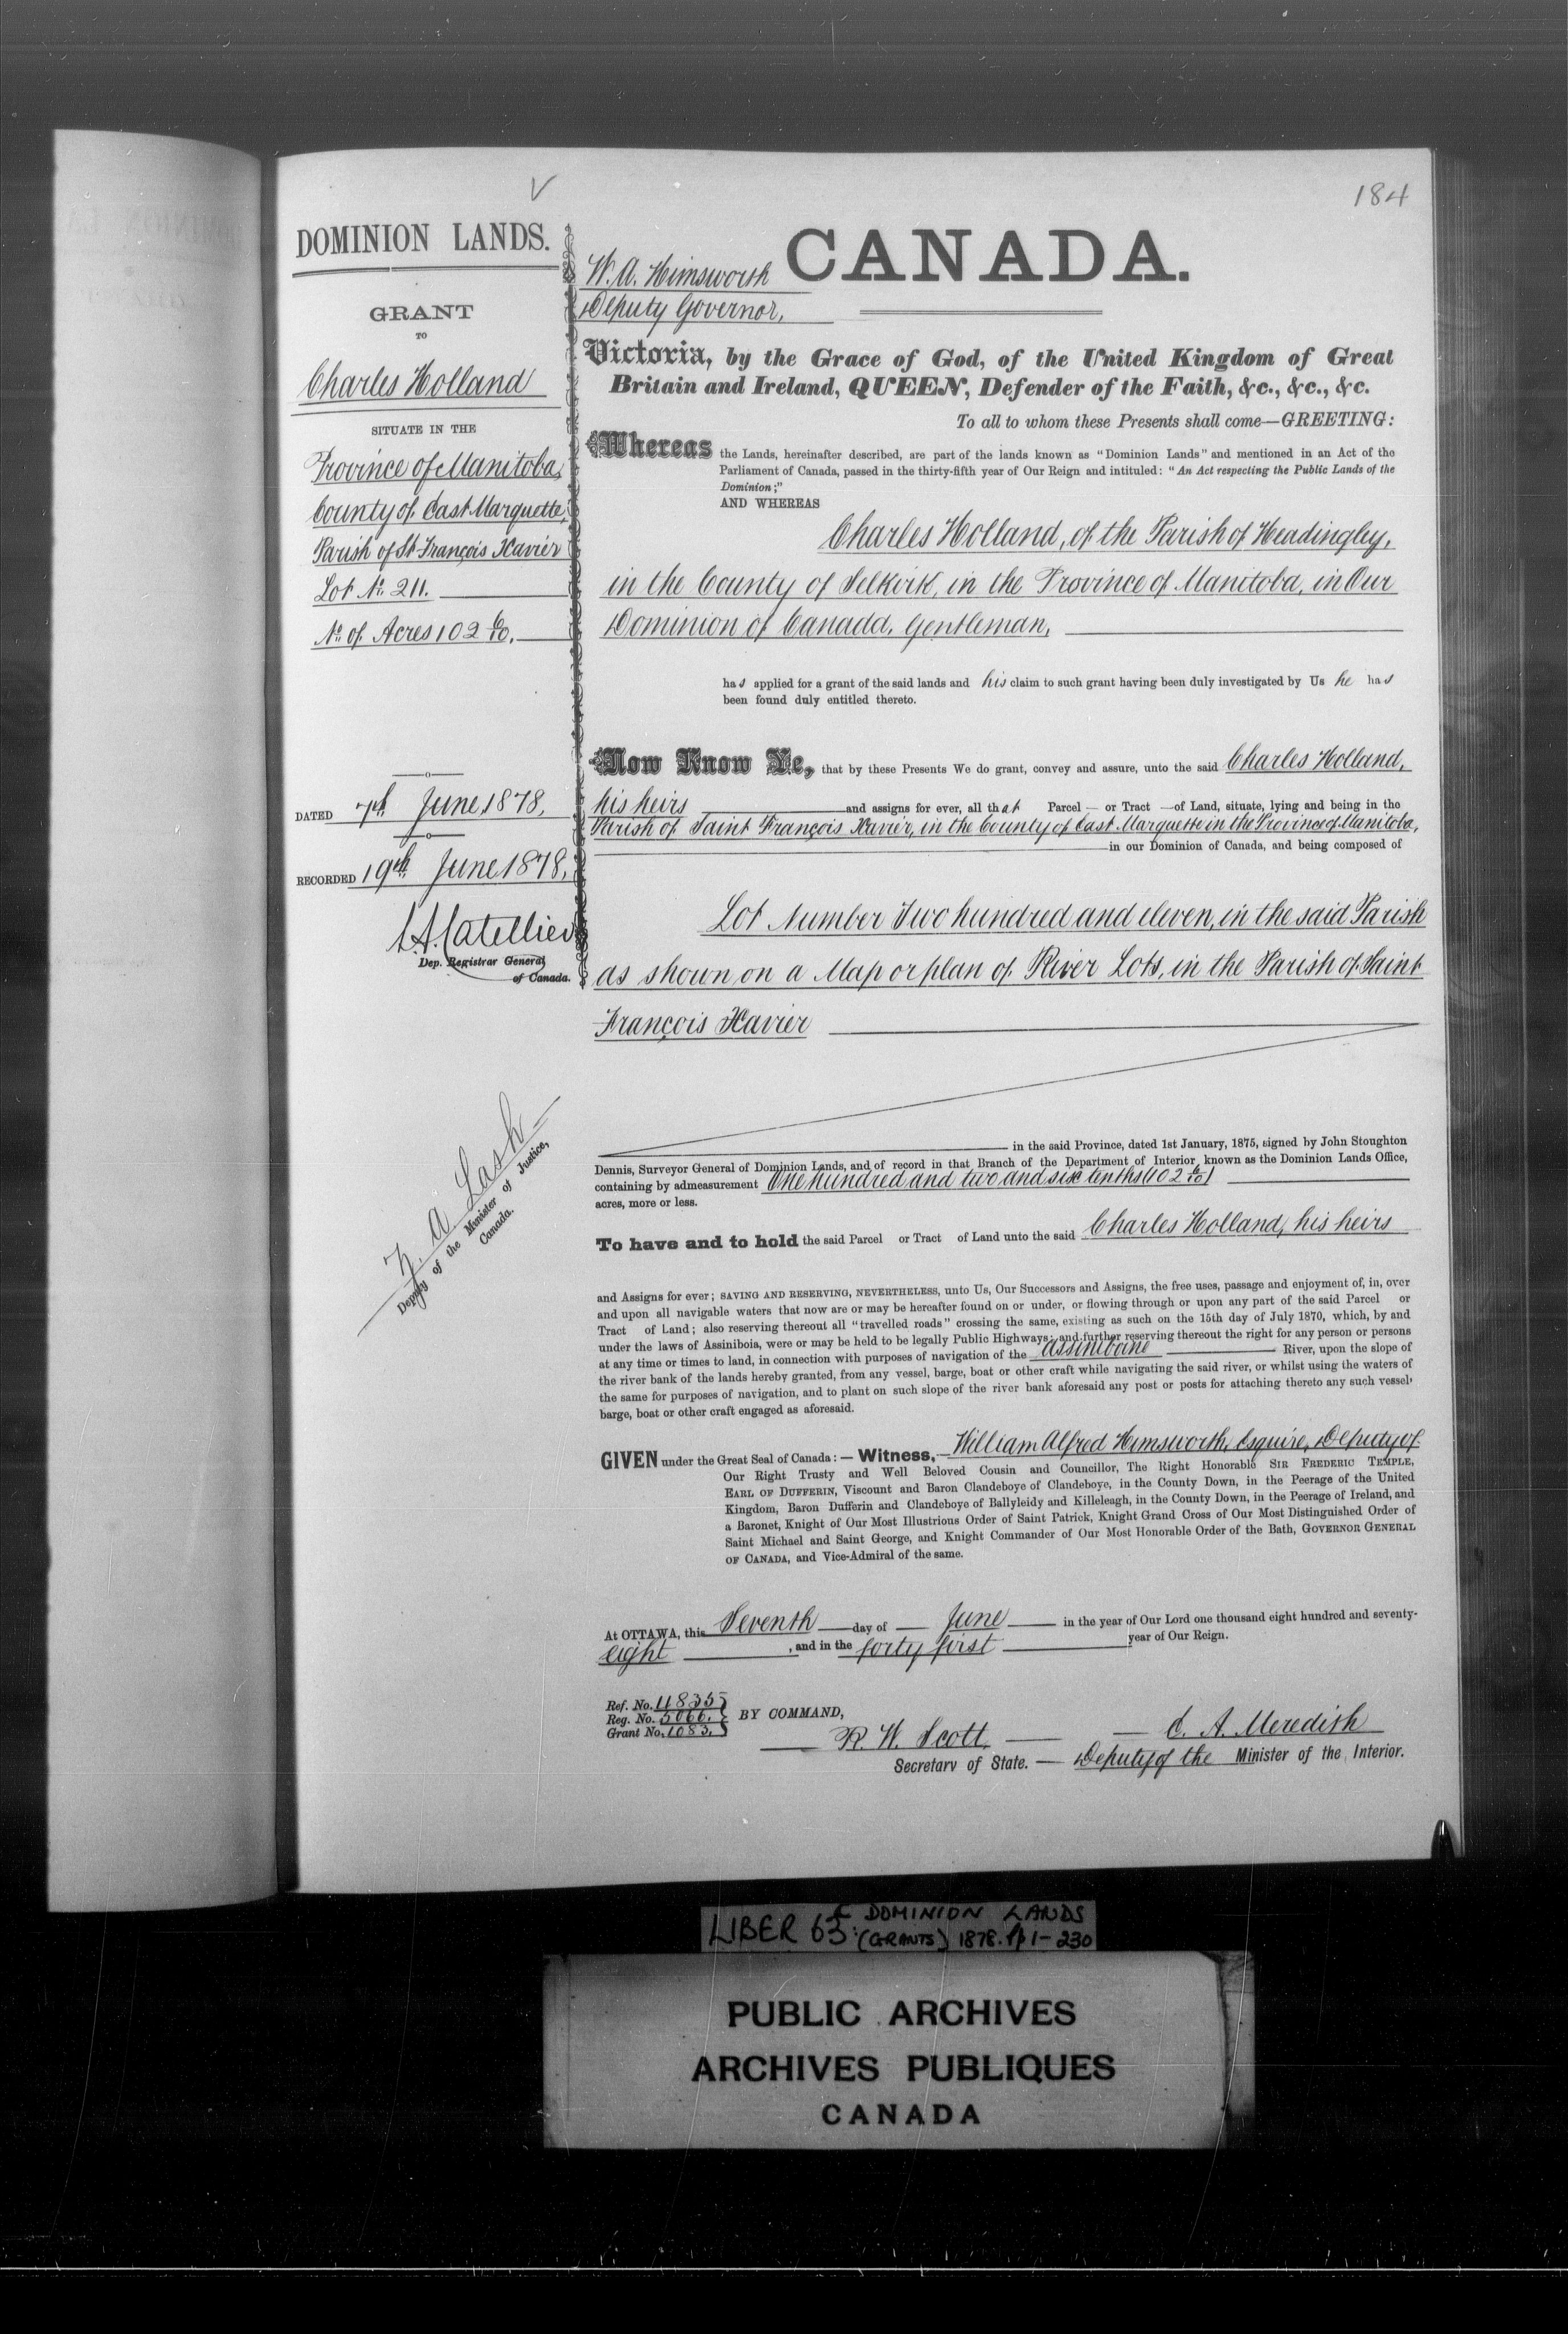 184
V
DOMINION LANDS.
GRANT
TO
Charles Holland
SITUATE IN THE
Province of Manitoba,
County of East Marquette,
Parish of St François Xavier
Lot No. 211.
No. of Acres 102 6/10.
DATED 7th June 1878,
RECORDED 19th June 1878,
L.A. Catellier
Dep. Registrar General
of Canada.
Z. A. Lash
Deputy of the Minister of Justice,
Canada.
W. A. Himsworth
Deputy Governor,
CANADA.
Victoria, by the Grace of God, of the United Kingdom of Great
Britain and Ireland, QUEEN, Defender of the Faith, &c., &c., &c.
To all to whom these Presents shall come—GREETING:
Whereas the Lands, hereinafter described, are part of the lands known as "Dominion Lands" and mentioned in an Act of the
Parliament of Canada, passed in the thirty-fifth year of Our Reign and intituled: "An Act respecting the Public Lands of the
Dominion;"
AND WHEREAS
Charles Holland, of the Parish of Headingley,
in the County of Selkirk, in the Province of Manitoba, in Our
Dominion of Canada, Gentleman,
has applied for a grant of the said lands and his claim to such grant having been duly investigated by Us he has
been found duly entitled thereto.
Now Know Ye, that by these Presents We do grant, convey and assure, unto the said Charles Holland,
his heirs and assigns for ever, all that Parcel — or Tract — of Land, situate, lying and being in the
Parish of Saint François Xavier, in the County of East Marquette in the Province of Manitoba,
in our Dominion of Canada, and being composed of
Lot Number Two hundred and eleven, in the said Parish
as shown on a Map or plan of River Lots, in the Parish of Saint
François Xavier
in the said Province, dated 1st January, 1875, signed by John Stoughton
Dennis, Surveyor General of Dominion Lands, and of record in that Branch of the Department of Interior known as the Dominion Lands Office,
containing by admeasurement One hundred and two and six tenths (102 6/10)
acres, more or less.
To have and to hold the said Parcel or Tract of Land unto the said Charles Holland, his heirs
and Assigns for ever; SAVING AND RESERVING, NEVERTHELESS, unto Us, Our Successors and Assigns, the free uses, passage and enjoyment of, in, over
and upon all navigable waters that now are or may be hereafter found on or under, or flowing through or upon any part of the said Parcel or
Tract of Land; also reserving thereout all "travelled roads" crossing the same, existing as such on the 15th day of July 1870, which, by and
under the laws of Assiniboia, were or may be held to be legally Public Highways; and further reserving thereout the right for any person or persons
at any time or times to land, in connection with purposes of navigation of the Assiniboine River, upon the slope of
the river bank of the lands hereby granted, from any vessel, barge, boat or other craft while navigating the said river, or whilst using the waters of
the same for purposes of navigation, and to plant on such slope of the river bank aforesaid any post or posts for attaching thereto any such vessel,
barge, boat or other craft engaged as aforesaid.
GIVEN under the Great Seal of Canada: — Witness, — William Alfred Himsworth, Esquire, Deputy of
Our Right Trusty and Well Beloved Cousin and Councillor, The Right Honorable SIR FREDERIC TEMPLE,
EARL OF DUFFERIN, Viscount and Baron Clandeboye of Clandeboye, in the County Down, in the Peerage of the United
Kingdom, Baron Dufferin and Clandeboye of Ballyleidy and Killeleagh, in the County Down, in the Peerage of Ireland, and
a Baronet, Knight of Our Most Illustrious Order of Saint Patrick, Knight Grand Cross of Our Most Distinguished Order of
Saint Michael and Saint George, and Knight Commander of Our Most Honorable Order of the Bath, GOVERNOR GENERAL
OF CANADA, and Vice-Admiral of the same.
At OTTAWA, this Seventh day of June in the year of Our Lord one thousand eight hundred and seventy-
eight, and in the forty first year of Our Reign.
Ref. No. 11835
Reg. No. 5066.
Grant No. 1083.
BY COMMAND,
R. W. Scott
Secretary of State.
E. A. Meredith
Deputy of the Minister of the Interior.
LIBER 65: DOMINION LANDS
(GRANTS) 1878. pp 1-230
PUBLIC ARCHIVES
ARCHIVES PUBLIQUES
CANADA